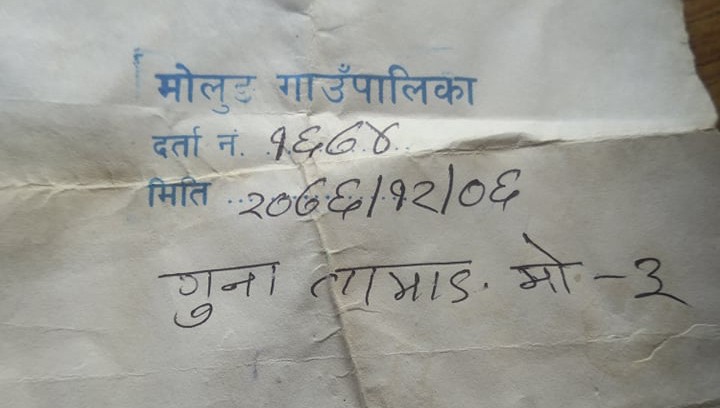 मोलुङ गाउँपालिका
दर्ता नं. १६७४
मिति ..२०७६/१२/०६
गुना तामाङ. मो -३